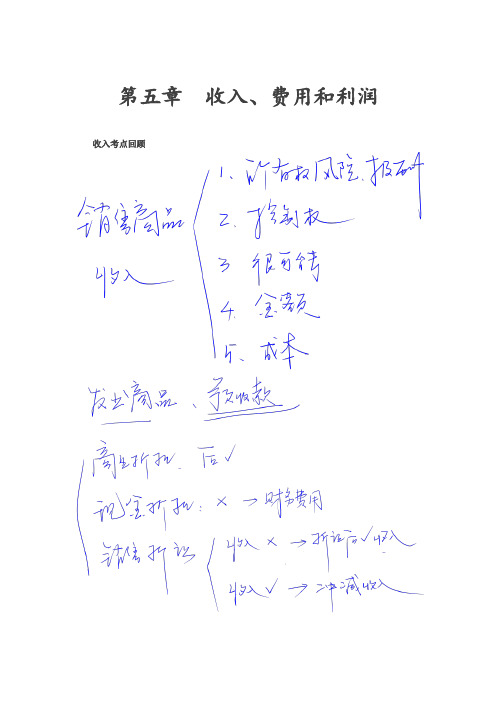 第五章 收入、费用和利润
收入考点回顾
销售商品
收入
1、所有权风险、报酬
2、控制权
3 很可能
4、金额
5、成本
发出商品、预收款
商业折扣、后√
现金折扣：× → 财务费用
销售折让
收入 × → 折让后√收入
收入 √ → 冲减收入